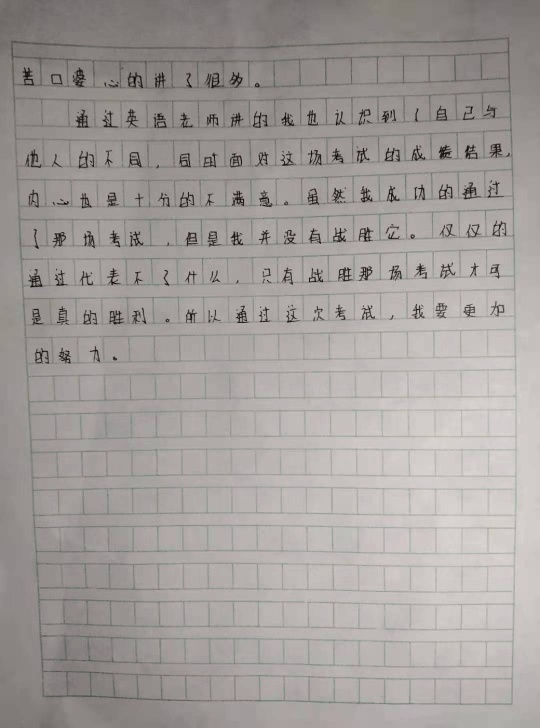 苦口婆心的讲了很多。
通过英语老师讲的我也认识到了自己与
他人的不同，同时面对这场考试的成绩结果，
内心也是十分的不满意。虽然我成功的通过
了那场考试，但是我并没有战胜它。仅仅的
通过代表不了什么，只有战胜那场考试才可
是真的胜利。所以通过这次考试，我要更加
的努力。